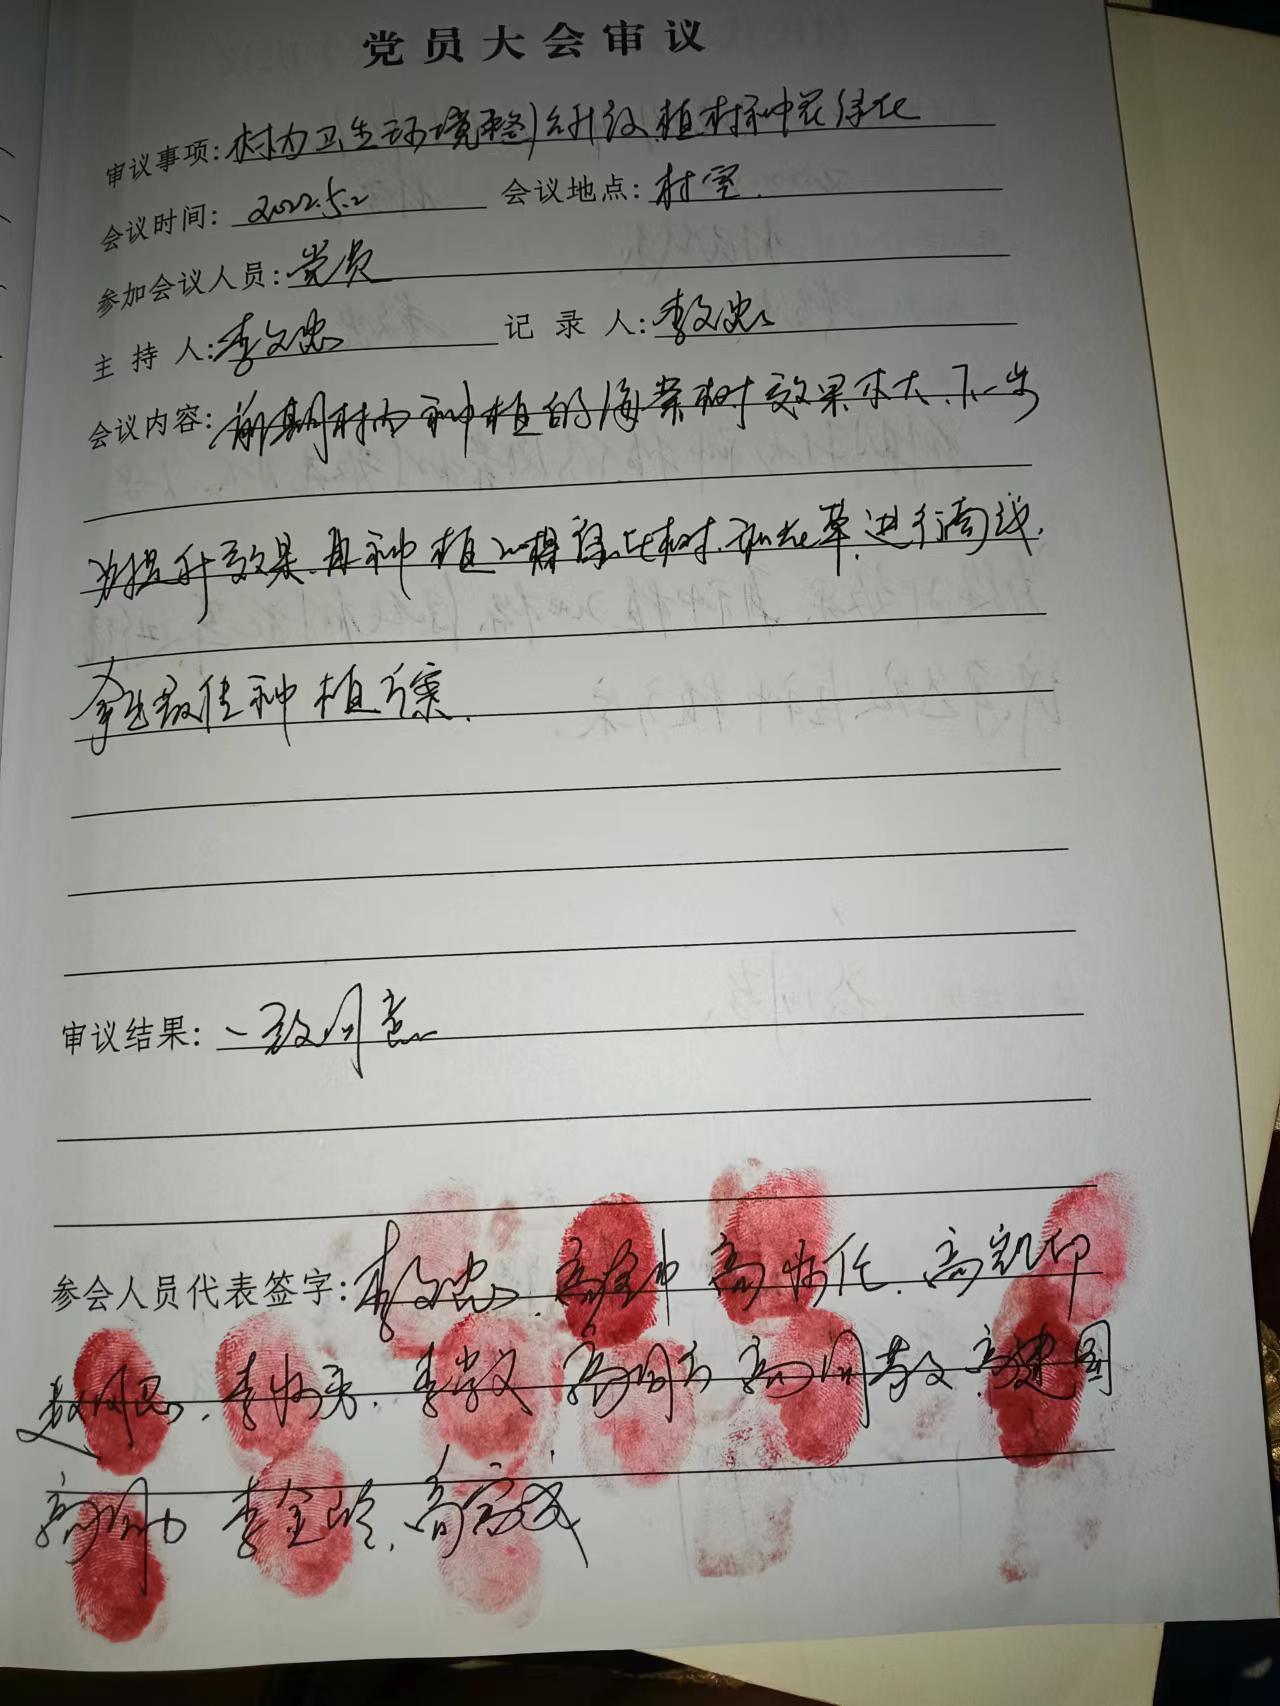 党员大会审议
审议事项:村内卫生环境整治升级植树种花绿化
会议时间: 2022.5.2 会议地点:村室.
参加会议人员:党员
主持人:李文忠 记录人:李文忠
会议内容:前期村内种植的海棠树效果不大.下一步
为提升效果.再种植 树.和花草.进行
最佳种植方案.
审议结果:一致同意
参会人员代表签字:李文忠.高全中 高 任.高凯印
李学文 高建国
李金岭.高宗成